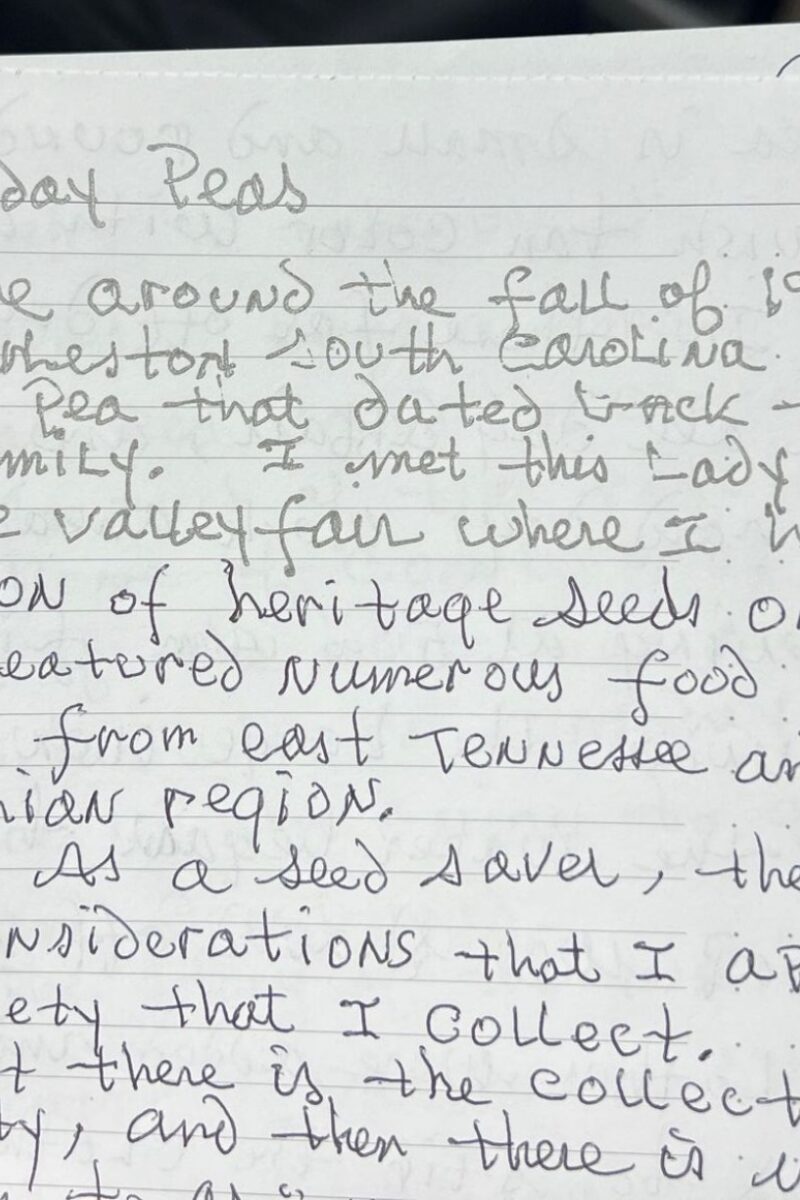 day Peas
e around the fall of 19
rleston South Carolina
Pea that dated back
mily. I met this Lady
e valley fair where I h
on of heritage seeds on
eatured numerous food
from east Tennessee an
hian region.
As a seed saver, the
nsiderations that I ap
ety that I collect.
t there is the collect
ty, and then there is